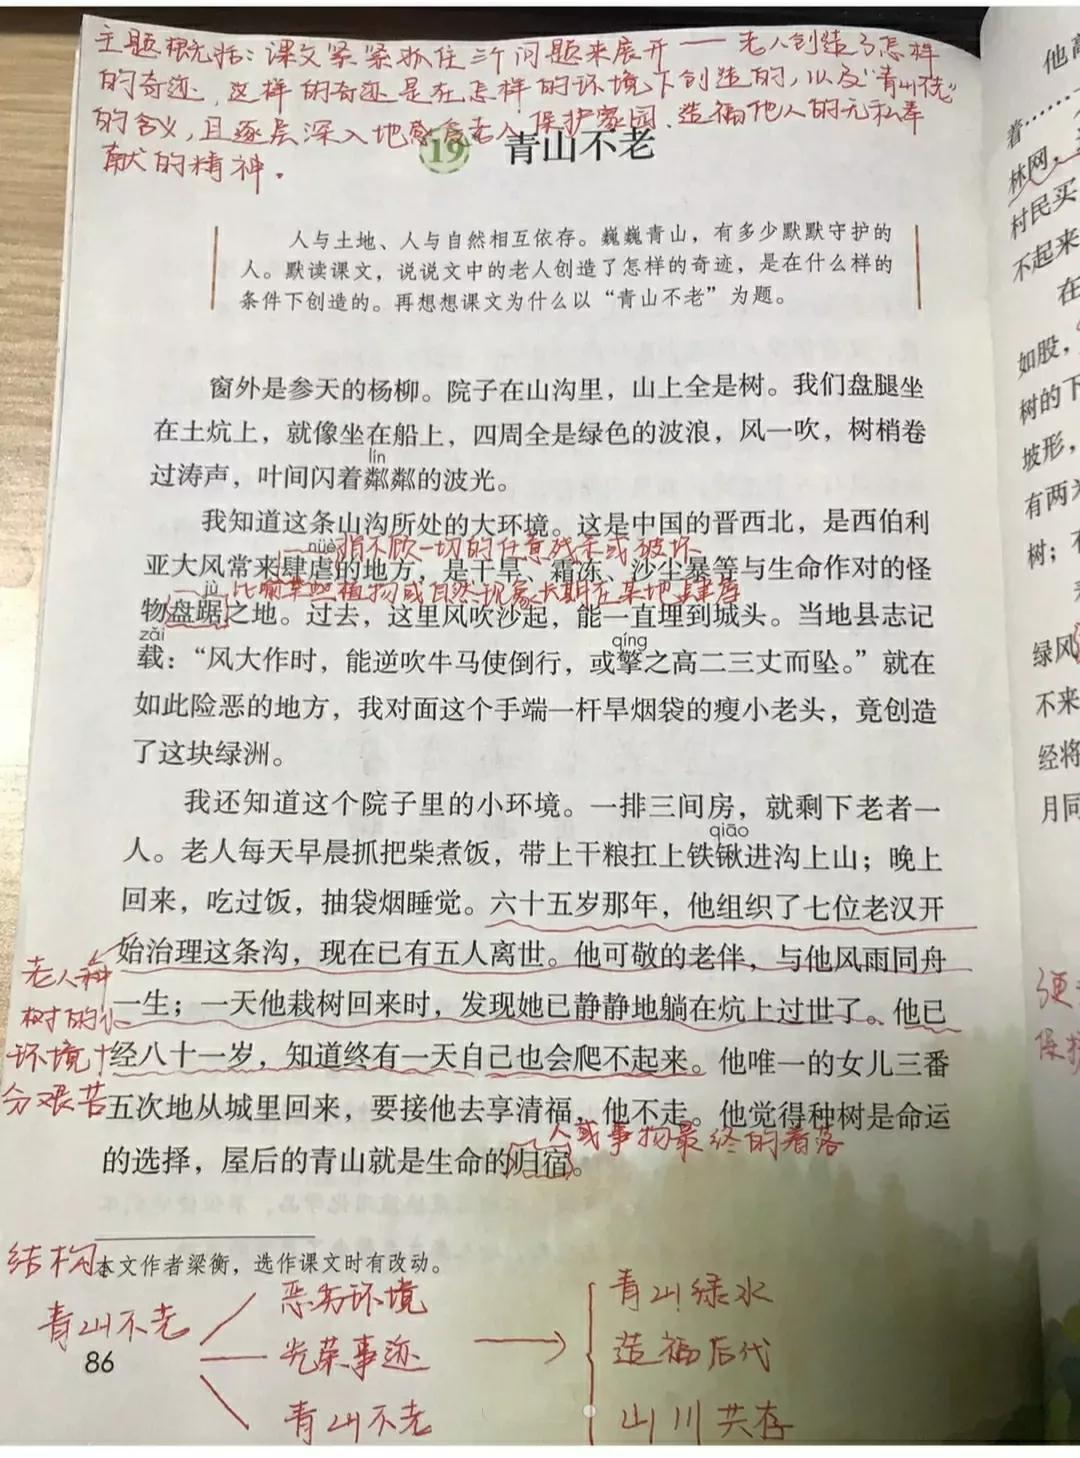 主题概括：课文紧紧抓住三个问题来展开——老人创造了怎样
的奇迹，这样的奇迹是在怎样的环境下创造的，以及“青山不老”
的含义，且逐层深入地感受老人保护家园、造福他人的无私奉
献的精神.
19 青山不老
人与土地、人与自然相互依存。巍巍青山，有多少默默守护的
人。默读课文，说说文中的老人创造了怎样的奇迹，是在什么样的
条件下创造的。再想想课文为什么以“青山不老”为题。
窗外是参天的杨柳。院子在山沟里，山上全是树。我们盘腿坐
在土炕上，就像坐在船上，四周全是绿色的波浪，风一吹，树梢卷
lín
过涛声，叶间闪着粼粼的波光。
我知道这条山沟所处的大环境。这是中国的晋西北，是西伯利
nüè 指不顾一切的任意残杀或破坏
亚大风常来肆虐的地方，是干旱、霜冻、沙尘暴等与生命作对的怪
jù 比喻某些植物或自然现象长期在某地
物盘踞之地。过去，这里风吹沙起，能一直埋到城头。当地县志记
zǎi qíng
载：“风大作时，能逆吹牛马使倒行，或擎之高二三丈而坠。”就在
如此险恶的地方，我对面这个手端一杆旱烟袋的瘦小老头，竟创造
了这块绿洲。
我还知道这个院子里的小环境。一排三间房，就剩下老者一
qiāo
人。老人每天早晨抓把柴煮饭，带上干粮扛上铁锹进沟上山；晚上
回来，吃过饭，抽袋烟睡觉。六十五岁那年，他组织了七位老汉开
始治理这条沟，现在已有五人离世。他可敬的老伴，与他风雨同舟
一生；一天他栽树回来时，发现她已静静地躺在炕上过世了。他已
经八十一岁，知道终有一天自己也会爬不起来。他唯一的女儿三番
五次地从城里回来，要接他去享清福，他不走。他觉得种树是命运
人或事物最终的着落
的选择，屋后的青山就是生命的归宿。
老人种
树的小
环境十
分艰苦
本文作者梁衡，选作课文时有改动。
结构：
青山不老
恶劣环境
光荣事迹
青山不老
青山绿水
造福后代
山川共存
86
他
着……
林网，
村民买
不起来
在
如股，
树的下
坡形，
有两
树；
绿风
不来
经将
月同